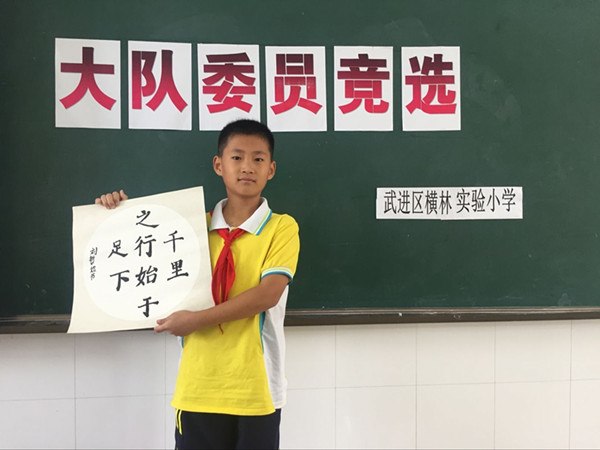 大队委员竞选
武进区横林 实验小学
千里
之行始于
足下